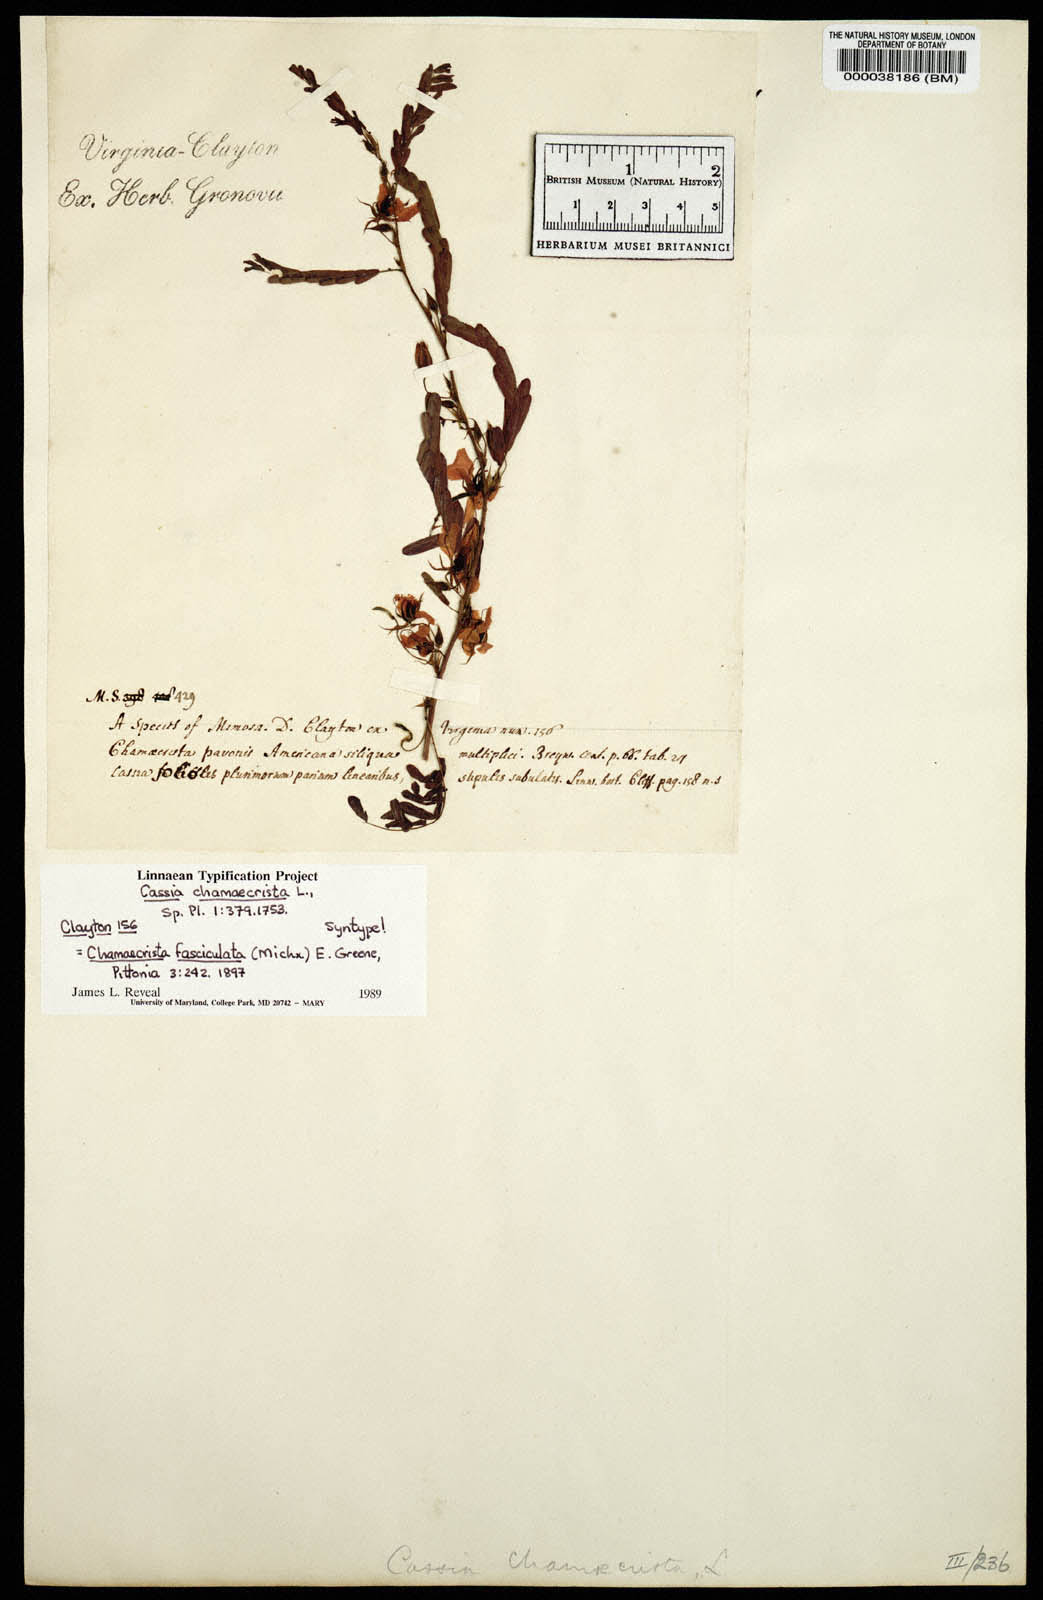 THE NATURAL HISTORY MUSEUM, LONDON
DEPARTMENT OF BOTANY
000038186 (BM)
Virginia - Clayton
Ex. Herb. Gronovii
1 2
BRITISH MUSEUM (NATURAL HISTORY)
1 2 3 4 5
HERBARIUM MUSEI BRITANNICI
M.S. 429
A Species of Mimosa. D. Clayton ex Virginia num. 156
Chamæcrista pavonis Americana siliqua multiplici. Breyn. cent. p. 66. tab. 24
Cassia foliolis plurimorum parium linearibus, stipulis subulatis. Linn. hort. Cliff. pag. 158 n. 5
Linnaean Typification Project
Cassia chamaecrista L.,
Sp. Pl. 1:379. 1753.
Clayton 156 Syntype!
= Chamaecrista fasciculata (Michx) E. Greene,
Pittonia 3:242. 1897
James L. Reveal 1989
University of Maryland, College Park, MD 20742 – MARY
Cassia chamæcrista, L
III/236